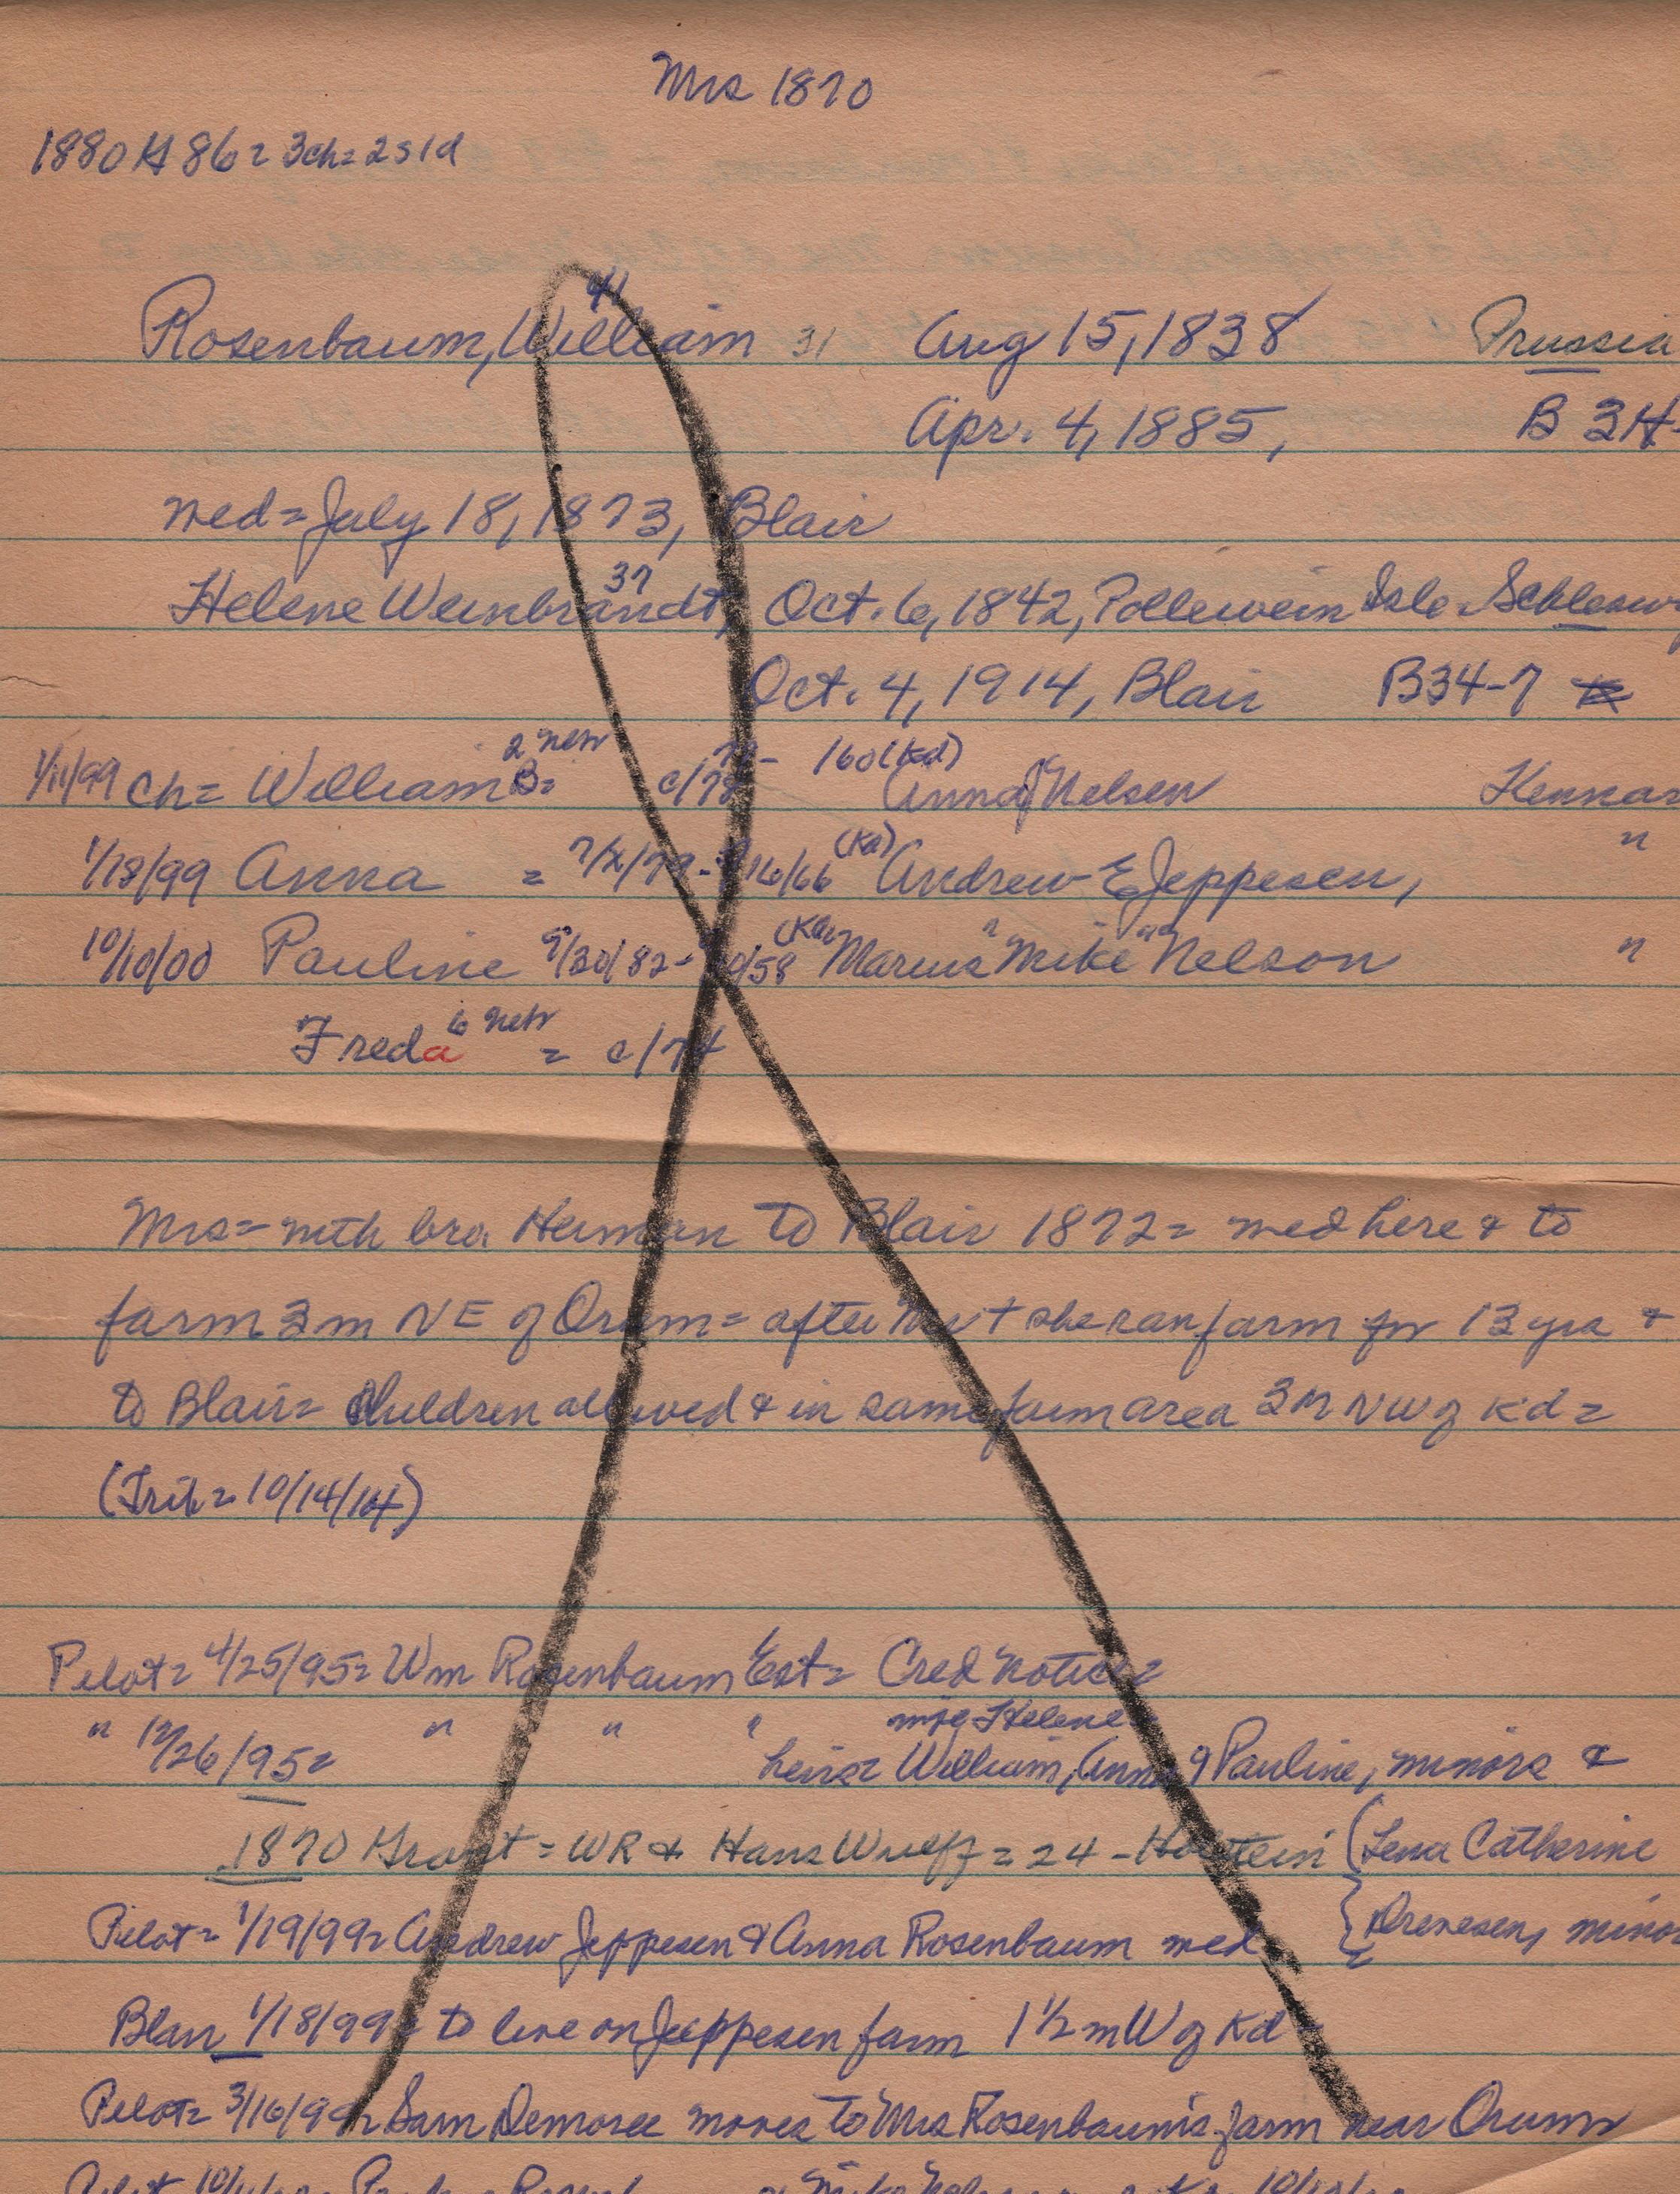 Mrs 1870
1880 H 86 = 3ch = 2s1d
41
Rosenbaum, William 31 Aug 15, 1838 Prussia
Apr. 4, 1885, B 34-
med = July 18, 1873, Blair
37
Helene Weinbrandt, Oct. 6, 1842, Pollewein Isle Schlesw
Oct. 4, 1914, Blair B34-7
1/11/99 ch = William B = 2 Nebr c/78 - 160 (Kd) Anna Nelsen Kennar
1/18/99 Anna = 16/66 (Kd) Andrew E Jeppesen, "
10/10/00 Pauline 9/30/82 - /58 (Kd) Marius "Mike" Nelson "
Freda 6 Nebr = c/74
Mrs = with bro. Herman to Blair 1872 = med here & to
farm 3m NE of Orum = after she ran farm for 13 yrs &
to Blair = Children all wed & in same farm area 3m NW of Kd =
(Trib = 10/14/14)
Pilot = 4/25/95 = Wm Rosenbaum Est = Cred Notice =
" 12/26/95 = " " " heirs = William, Anna & Pauline, minors &
mjg Helene
1870 Grant = WR & Hans Wulff = 24 - Holstein (Lena Catherine
Pilot = 1/19/99 = Andrew Jeppesen & Anna Rosenbaum med { minor
Blair 1/18/99 = to live on Jeppesen farm 1 1/2 m W of Kd
Pilot = 3/16/99 = Sam Demoree moves to Mrs Rosenbaum's farm near Orum